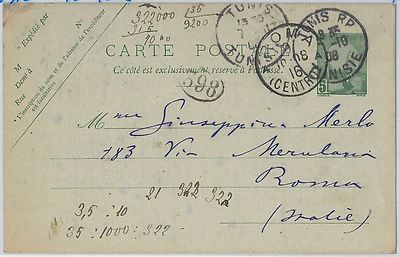 322000 135
315 9200
7000
TUNIS
TUNIS RP
18 35
7-10
08
TUNISIE
ROMA
18
(CENTRO)
CARTE POSTALE
Ce côté est exclusivement réservé à l'adresse.
M
Expédié par
Demeurant à
Rue
L'inscription du nom et de l'adresse de l'expéditeur
est facultative
598
5
Mme Giuseppina Merlo
183 Via Merulana
Roma
(Italie)
21 322 322
3,5 : 10
35 : 1000 : 322